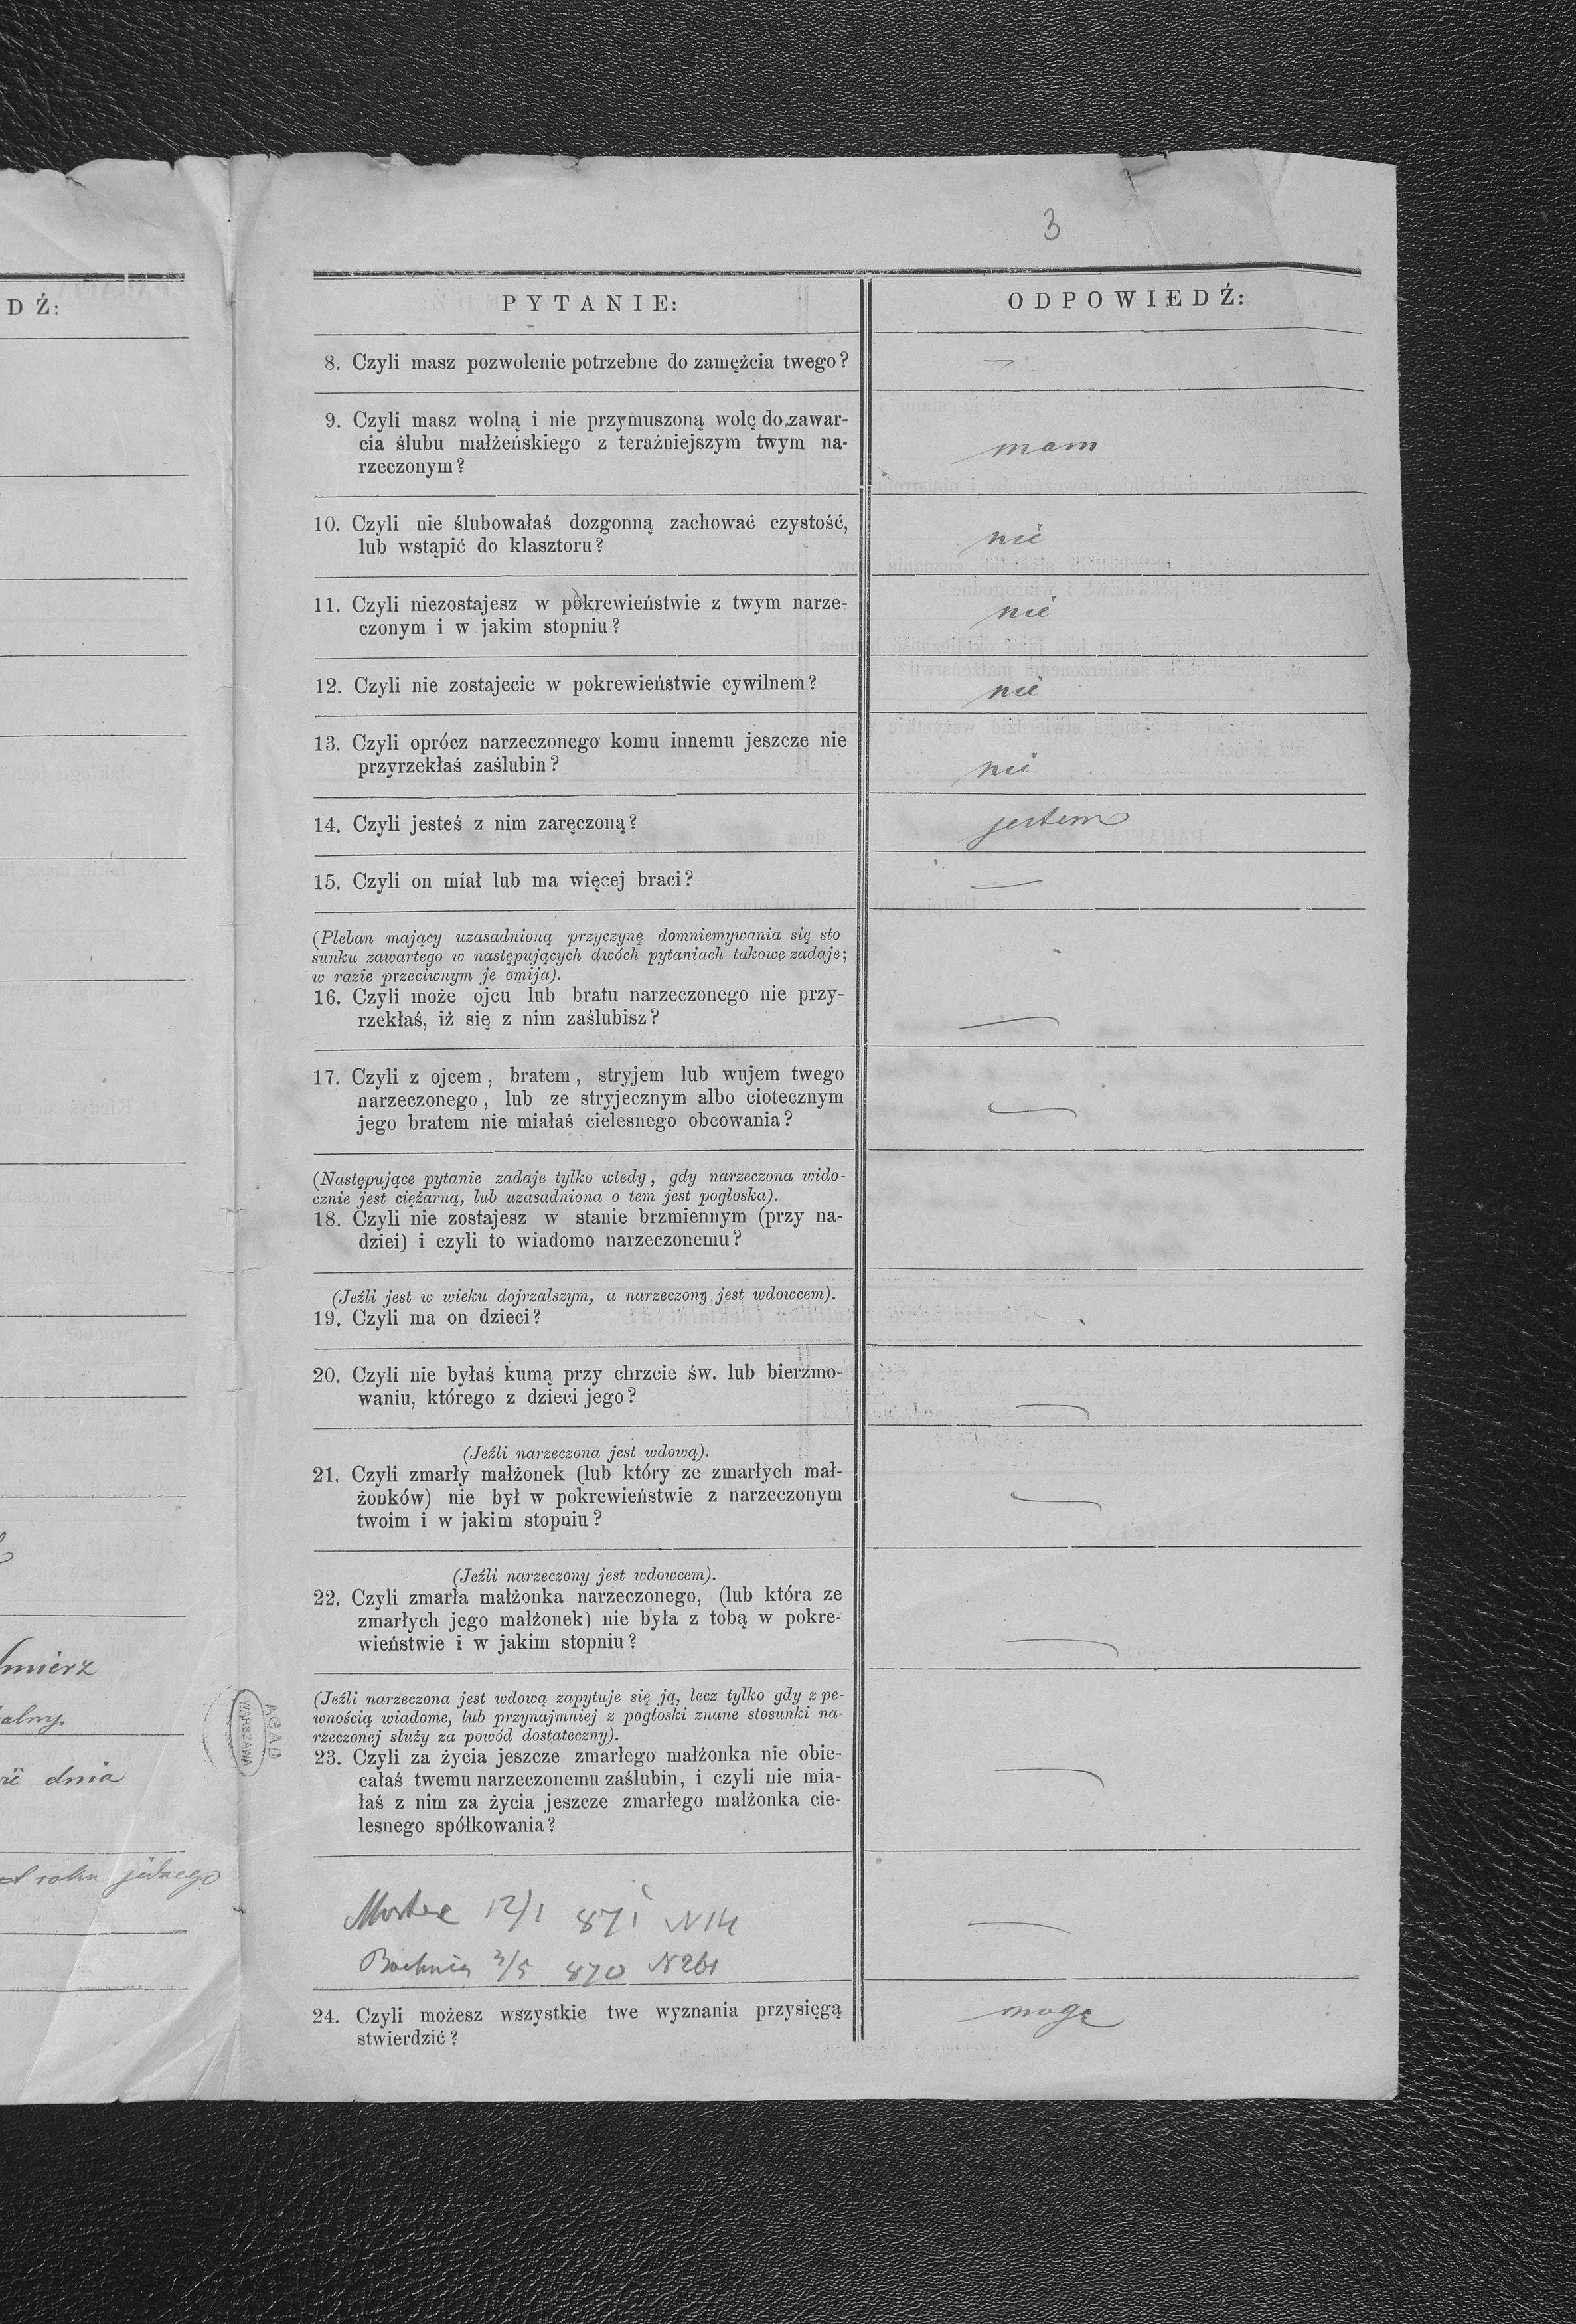 3
D Ź:
PYTANIE:
ODPOWIEDŹ:
8. Czyli masz pozwolenie potrzebne do zamężcia twego?
—
9. Czyli masz wolną i nie przymuszoną wolę do zawar-
cia ślubu małżeńskiego z teraźniejszym twym na-
rzeczonym?
mam
10. Czyli nie ślubowałaś dozgonną zachować czystość,
lub wstąpić do klasztoru?
nie
11. Czyli niezostajesz w pokrewieństwie z twym narze-
czonym i w jakim stopniu?
nie
12. Czyli nie zostajecie w pokrewieństwie cywilnem?
nie
13. Czyli oprócz narzeczonego komu innemu jeszcze nie
przyrzekłaś zaślubin?
nie
14. Czyli jesteś z nim zaręczoną?
jestem
15. Czyli on miał lub ma więcej braci?
—
(Pleban mający uzasadnioną przyczynę domniemywania się sto
sunku zawartego w następujących dwóch pytaniach takowe zadaje;
w razie przeciwnym je omija).
16. Czyli może ojcu lub bratu narzeczonego nie przy-
rzekłaś, iż się z nim zaślubisz?
—
17. Czyli z ojcem, bratem, stryjem lub wujem twego
narzeczonego, lub ze stryjecznym albo ciotecznym
jego bratem nie miałaś cielesnego obcowania?
—
(Następujące pytanie zadaje tylko wtedy, gdy narzeczona wido-
cznie jest ciężarną, lub uzasadniona o tem jest pogłoska).
18. Czyli nie zostajesz w stanie brzmiennym (przy na-
dziei) i czyli to wiadomo narzeczonemu?
(Jeźli jest w wieku dojrzalszym, a narzeczony jest wdowcem).
19. Czyli ma on dzieci?
20. Czyli nie byłaś kumą przy chrzcie św. lub bierzmo-
waniu, którego z dzieci jego?
—
(Jeźli narzeczona jest wdową).
21. Czyli zmarły małżonek (lub który ze zmarłych mał-
żonków) nie był w pokrewieństwie z narzeczonym
twoim i w jakim stopniu?
—
(Jeźli narzeczony jest wdowcem).
22. Czyli zmarła małżonka narzeczonego, (lub która ze
zmarłych jego małżonek) nie była z tobą w pokre-
wieństwie i w jakim stopniu?
—
(Jeźli narzeczona jest wdową zapytuje się ją, lecz tylko gdy z pe-
wnością wiadome, lub przynajmniej z pogłoski znane stosunki na-
rzeczonej służy za powód dostateczny).
23. Czyli za życia jeszcze zmarłego małżonka nie obie-
całaś twemu narzeczonemu zaślubin, i czyli nie mia-
łaś z nim za życia jeszcze zmarłego małżonka cie-
lesnego spółkowania?
—
12/1 871 N14
Bochnia 3/5 870 N261
—
24. Czyli możesz wszystkie twe wyznania przysięgą
stwierdzić?
mogę
mierz
alny.
dnia
roku jednego
AGAD
WARSZAWA